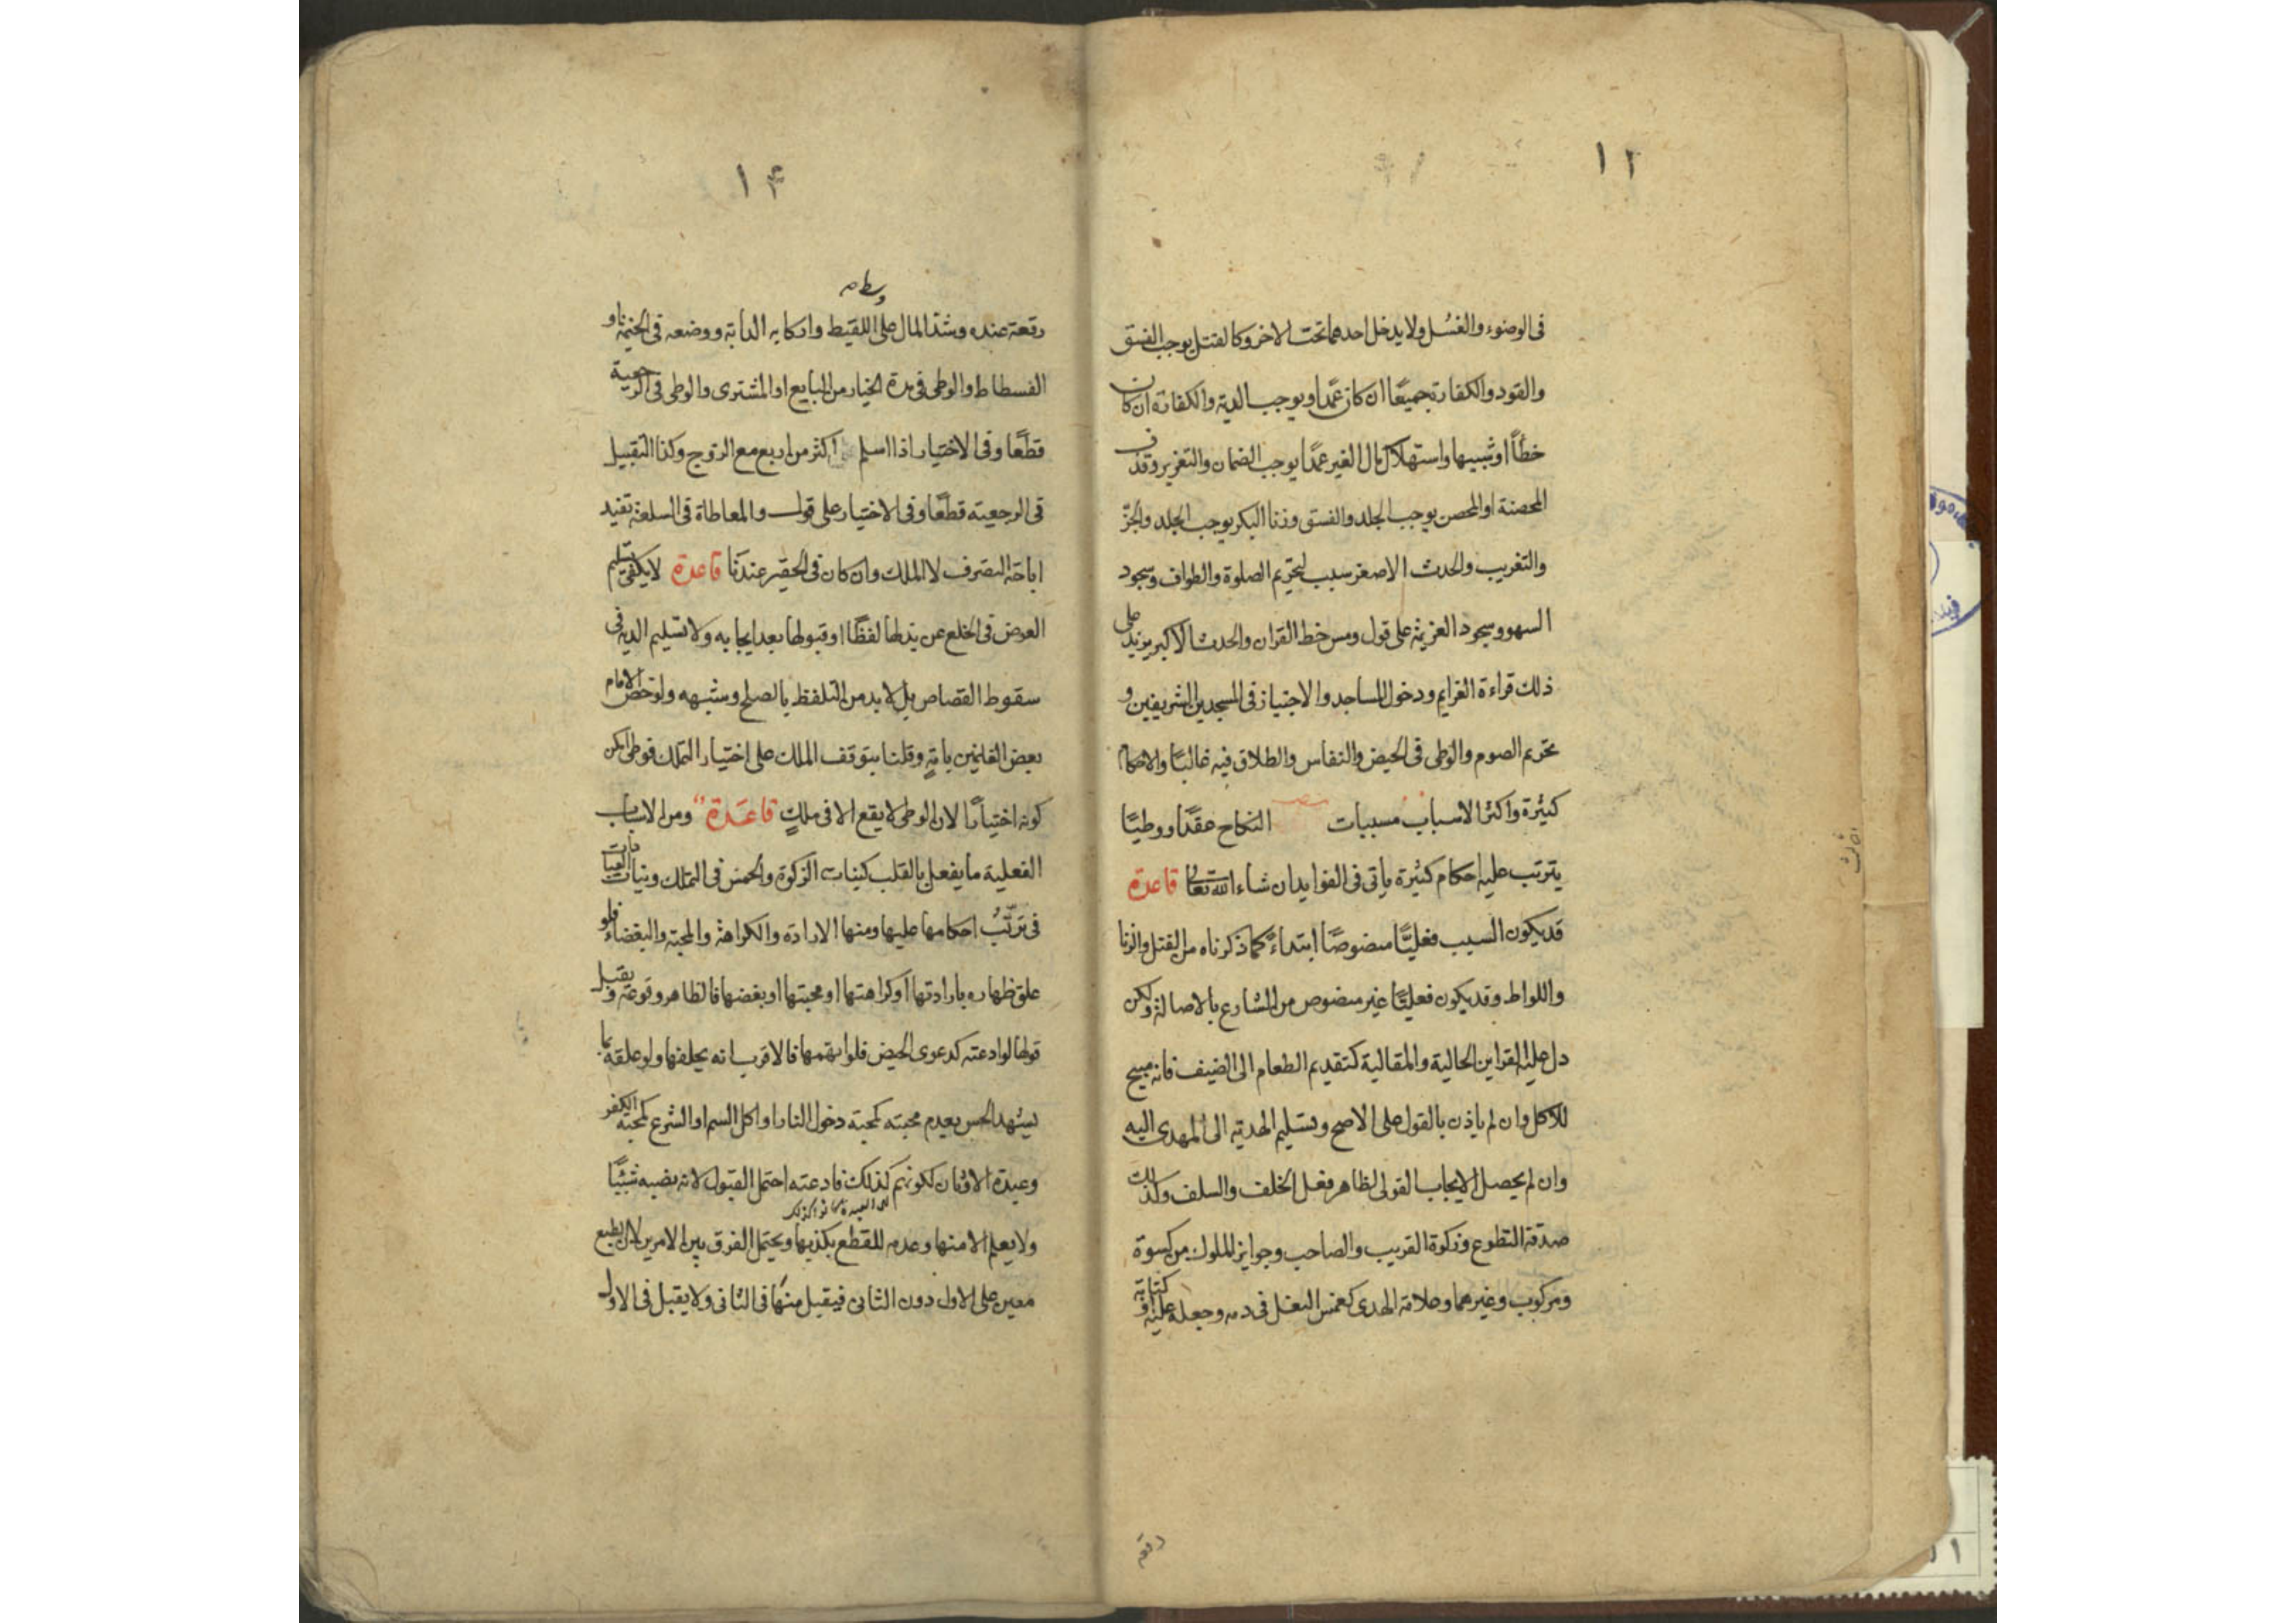 ١٢
فى الوضوء والغسل ولا يدخل احدهما تحت الاخر وكالقتل يوجب الفسق
والقود والكفارة جميعًا ان كان عمدًا ويوجب الدية والكفارة ان كان
خطأً او شبيها واستهلاك مال الغير عمدًا يوجب الضمان والتعزير وقذف
المحصنة او المحصن يوجب الجلد والفسق وزنا البكر يوجب الجلد والجزّ
والتغريب والحدث الاصغر سبب لتحريم الصلوة والطواف وسجود
السهو وسجود العزيمة على قول ومس خط القران والحدث الاكبر يزيد على
ذلك قراءة العزايم ودخول المساجد والاجتياز فى المسجدين الشريفين و
تحريم الصوم والوطى فى الحيض والنفاس والطلاق فيه غالبًا والاحكام
كثيرة واكثر الاسباب مسببات النكاح عقدًا ووطيًا
يترتب عليه احكام كثيرة ياتى فى الفوايد ان شاء الله تعالى قاعدة
قد يكون السبب فعليًّا منصوصًا ابتداءً كما ذكرناه من القتل والزنا
واللواط وقد يكون فعليًّا غير منصوص من الشارع بالاصالة ولكن
دل عليه القراين الحالية والمقالية كتقديم الطعام الى الضيف فانه مبيح
للاكل وان لم ياذن بالقول على الاصح وتسليم الهدية الى المهدى اليه
وان لم يحصل الايجاب القولى لظاهر فعل الخلف والسلف وكذلك
صدقة التطوع وزكوة القريب والصاحب وجوايز الملوك من كسوة
ومركوب وغيرهما وعلامة الهدى كغمس النعل فى دمه وجعله عليه او كتابة
رقعه
١۴
وسطه
رقعة عنده وشد المال على اللقيط واركابه الدابة ووضعه فى الخيمة او
الفسطاط والوطى فى مدة الخيار من البايع او المشترى والوطى فى الرجعية
قطعًا وفى الاختيار اذا اسلم اكثر من اربع مع الزوج وكذا التقبيل
فى الرجعية قطعًا وفى الاختيار على قول والمعاطاة فى السلعة تفيد
اباحة التصرف لا الملك وان كان فى الحقير عندنا قاعدة لا يكفى تسليم
العوض فى الخلع عن بذلها لفظًا او قبولها بعد ايجابه ولا تسليم الدية فى
سقوط القصاص بل لا بد من التلفظ بالصلح وشبهه ولو خص الامام
بعض الغانمين بامةٍ وقلنا بتوقف الملك على اختيار التملك فوطى امكن
كونه اختيارًا لان الوطى لا يقع الا فى ملكٍ قاعدة ومن الاسباب
الفعلية ما يفعل بالقلب كنيات الزكوة والخمس فى التملك ونيات العبادات
فى ترتّب احكامها عليها ومنها الارادة والكراهة والمحبة والبغضاء فلو
علق ظهاره بارادتها او كراهتها او محبتها او بغضها فالظاهر وقوعه ويقبل
قولها لو ادعته كدعوى الحيض فلو اتهمها فالاقرب انه يحلفها ولو علقه بما
يشهد الحس بعدم محبته كمحبة دخول النار او اكل السم او الشرع كمحبة الكفر
وعبدة الاوثان لكونهم كذلك فادعته احتمل القبول لانه نصبه شيئًا
ولا يعلم الا منها وعدمه للقطع بكذبها ويحتمل الفرق بين الامرين لان الطبع
معين على الاول دون الثانى فيقبل منها فى الثانى ولا يقبل فى الاول